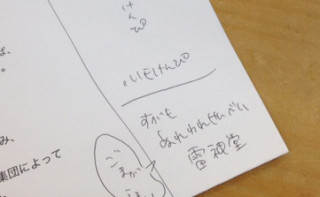 は、
。
み、
集団によって
けんぴ
いもけんぴ
すがも
ぬれかれせんべい
雷神堂
ごまが